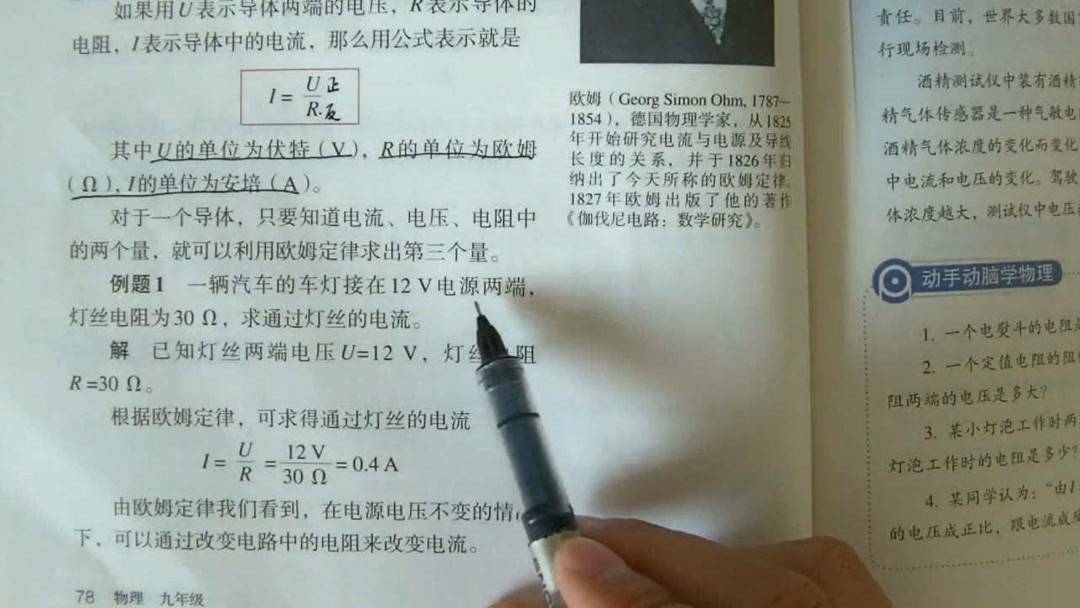 如果用U表示导体两端的电压，R表示导体的
电阻，I表示导体中的电流，那么用公式表示就是
I = U/R 正 反
其中U的单位为伏特（V），R的单位为欧姆
（Ω），I的单位为安培（A）。
对于一个导体，只要知道电流、电压、电阻中
的两个量，就可以利用欧姆定律求出第三个量。
例题1 一辆汽车的车灯接在12 V电源两端，
灯丝电阻为30 Ω，求通过灯丝的电流。
解 已知灯丝两端电压U=12 V，灯丝 阻
R=30 Ω。
根据欧姆定律，可求得通过灯丝的电流
I = U/R = 12 V/30 Ω = 0.4 A
由欧姆定律我们看到，在电源电压不变的情
下，可以通过改变电路中的电阻来改变电流。
78 物理 九年级
欧姆（Georg Simon Ohm, 1787—
1854），德国物理学家，从1825
年开始研究电流与电源及导线
长度的关系，并于1826年归
纳出了今天所称的欧姆定律。
1827年欧姆出版了他的著作
《伽伐尼电路：数学研究》。
责任。目前，世界大多数国
行现场检测。
酒精测试仪中装有酒精
精气体传感器是一种气敏电
酒精气体浓度的变化而变化
中电流和电压的变化。驾驶
体浓度越大，测试仪中电压
动手动脑学物理
1. 一个电熨斗的电阻是
2. 一个定值电阻的阻
阻两端的电压是多大？
3. 某小灯泡工作时两
灯泡工作时的电阻是多少？
4. 某同学认为：“由I
的电压成正比，跟电流成